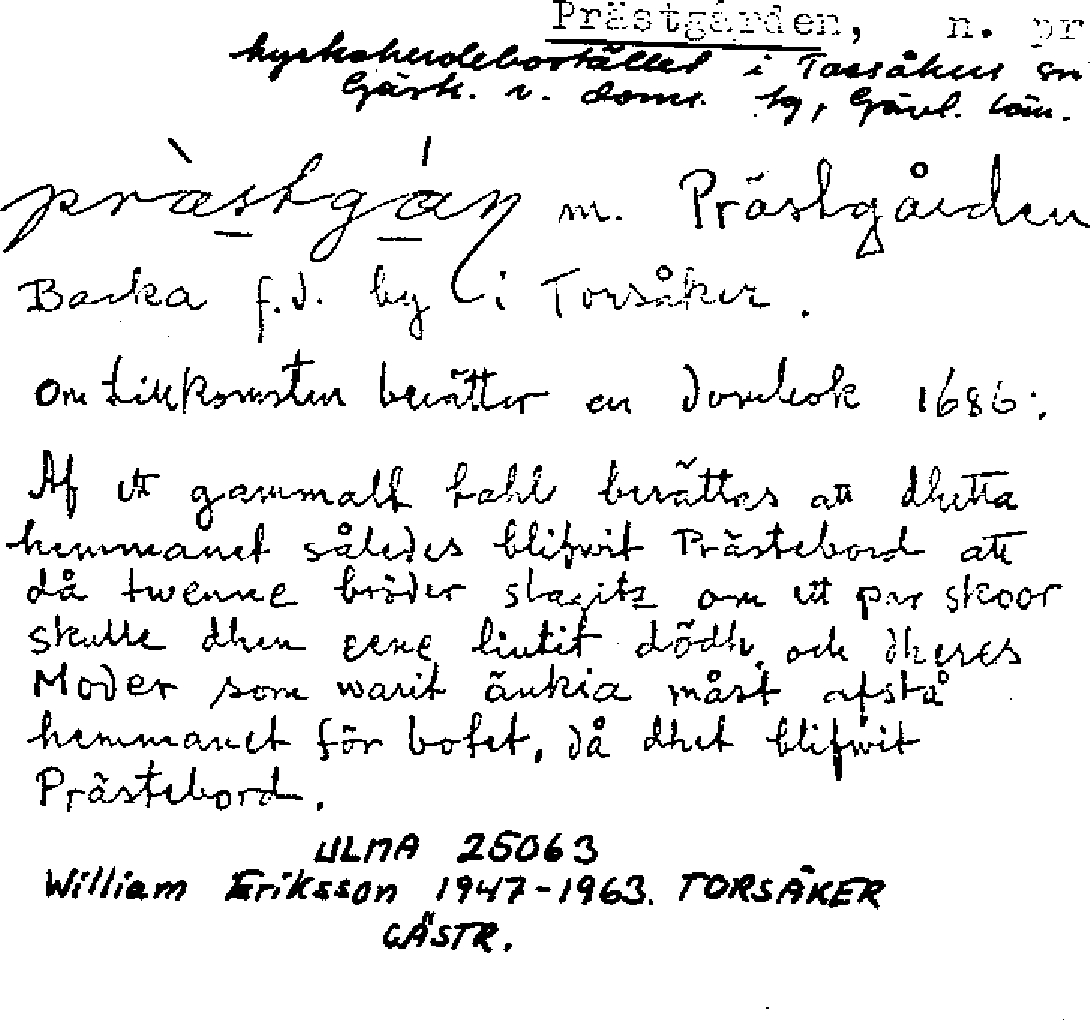 Prästgården, n. pr
kyrkoherdebostället i Torsåkers sn
Gästr. v. doms. tg, Gävl. län.
prästgán m. Prästgården
Backa f.d. by i Torsåker.
Om tillkomsten berätter en dombok 1686:
Af ett gammalt tahl berättas att dhetta
hemmanet således blifwit Prästebord att
då twenne bröder slagitz om ett par skoor
skulle dhen eene liutit dödh, och dheres
Moder som warit änkia måst afstå
hemmanet för botet, då dhet blifwit
Prästebord.
ULMA 25063
William Eriksson 1947-1963. TORSÅKER
GÄSTR.